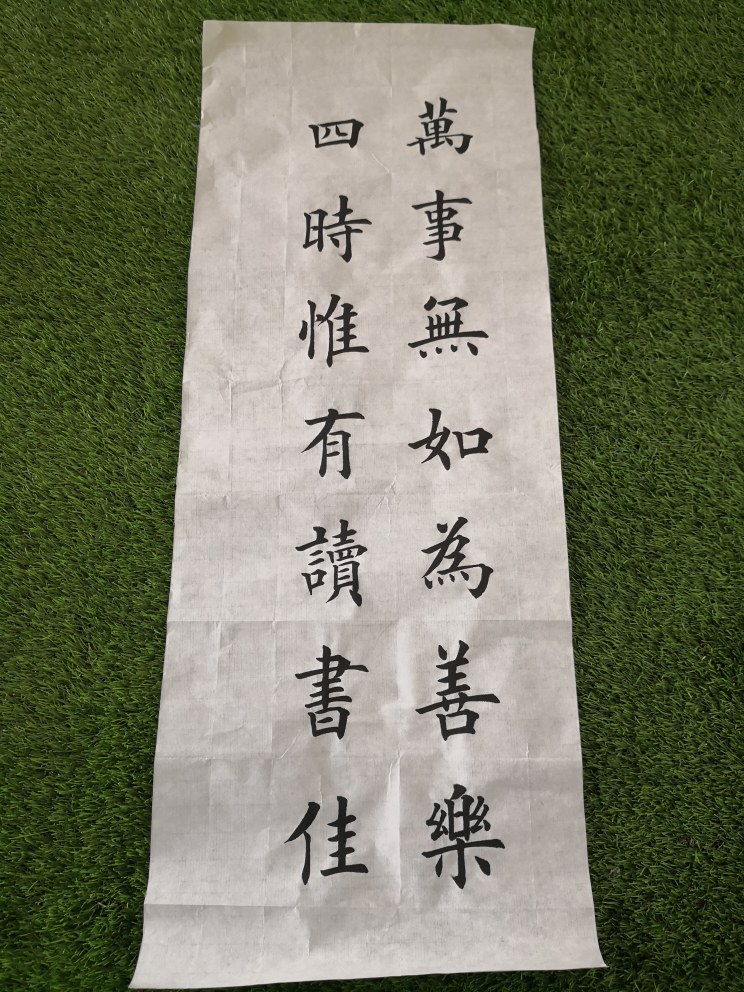 萬事無如為善樂
四時惟有讀書佳